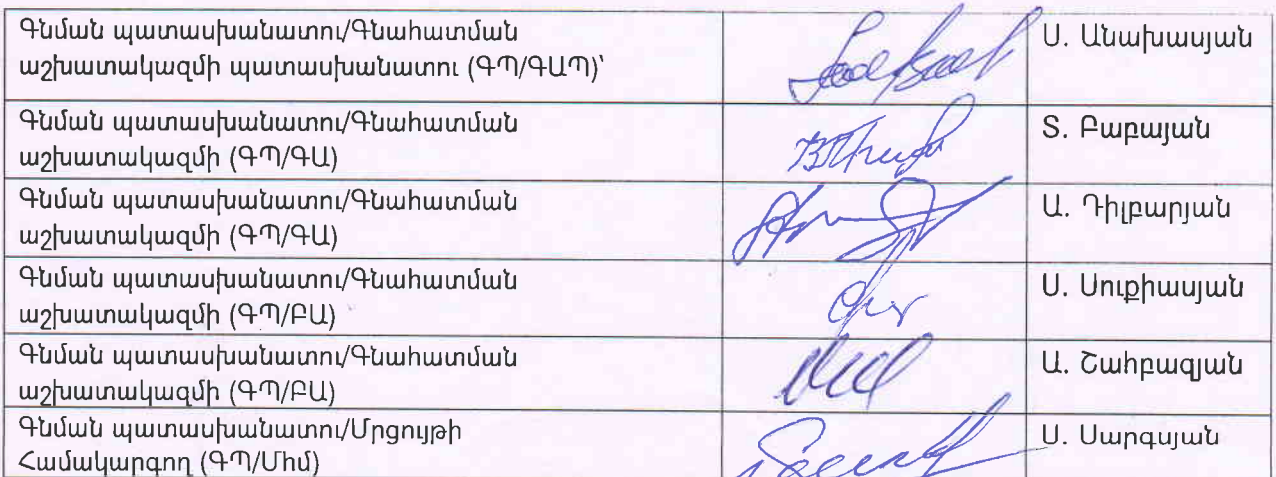 Գնման պատասխանատու/Գնահատման
աշխատակազմի պատասխանատու (ԳՊ/ԳԱՊ)՝
Ս. Անախասյան
Գնման պատասխանատու/Գնահատման
աշխատակազմի (ԳՊ/ԳԱ)
Տ. Բաբայան
Գնման պատասխանատու/Գնահատման
աշխատակազմի (ԳՊ/ԳԱ)
Ա. Դիլբարյան
Գնման պատասխանատու/Գնահատման
աշխատակազմի (ԳՊ/ԲԱ)
Ս. Սուքիասյան
Գնման պատասխանատու/Գնահատման
աշխատակազմի (ԳՊ/ԲԱ)
Ա. Շահբազյան
Գնման պատասխանատու/Մրցույթի
Համակարգող (ԳՊ/Մհմ)
Ս. Սարգսյան